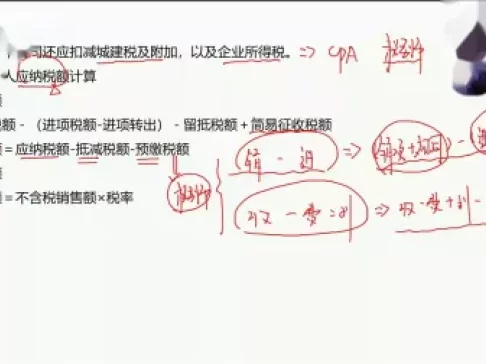 司还应扣减城建税及附加，以及企业所得税。=> CPA
人应纳税额计算
额
税额 - （进项税额-进项转出） - 留抵税额 + 简易征收税额
额 = 应纳税额-抵减税额-预缴税额
销 - 进 =>
额
额 = 不含税销售额×税率
收 - 费 = 利 => 收 - 费 + 利 -